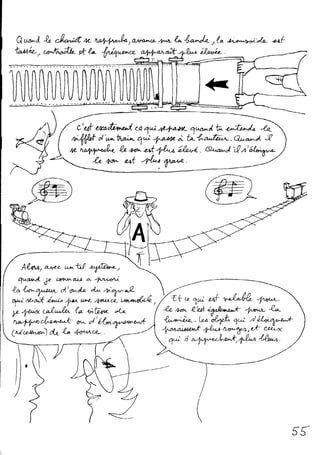 Quand le chariot se rapproche, avance sur la bande, la sinusoïde est
tassée, contractée et la fréquence apparaît plus élevée.
C'est exactement ce qui se passe quand tu entends le
sifflet d'un train qui passe à ta hauteur. Quand il
se rapproche le son est plus élevé. Quand il s'éloigne
le son est plus grave.
A
Alors, avec un tel système,
quand je connais a priori
la longueur d'onde du signal
qui serait émis par une source immobile,
je peux calculer la vitesse de
rapprochement ou d'éloignement
(récession) de la source.
Et ce qui est valable pour
le son l'est également pour la
lumière. Les objets qui s'éloignent
paraissent plus rouges, et ceux
qui s'approchent, plus bleus.
55